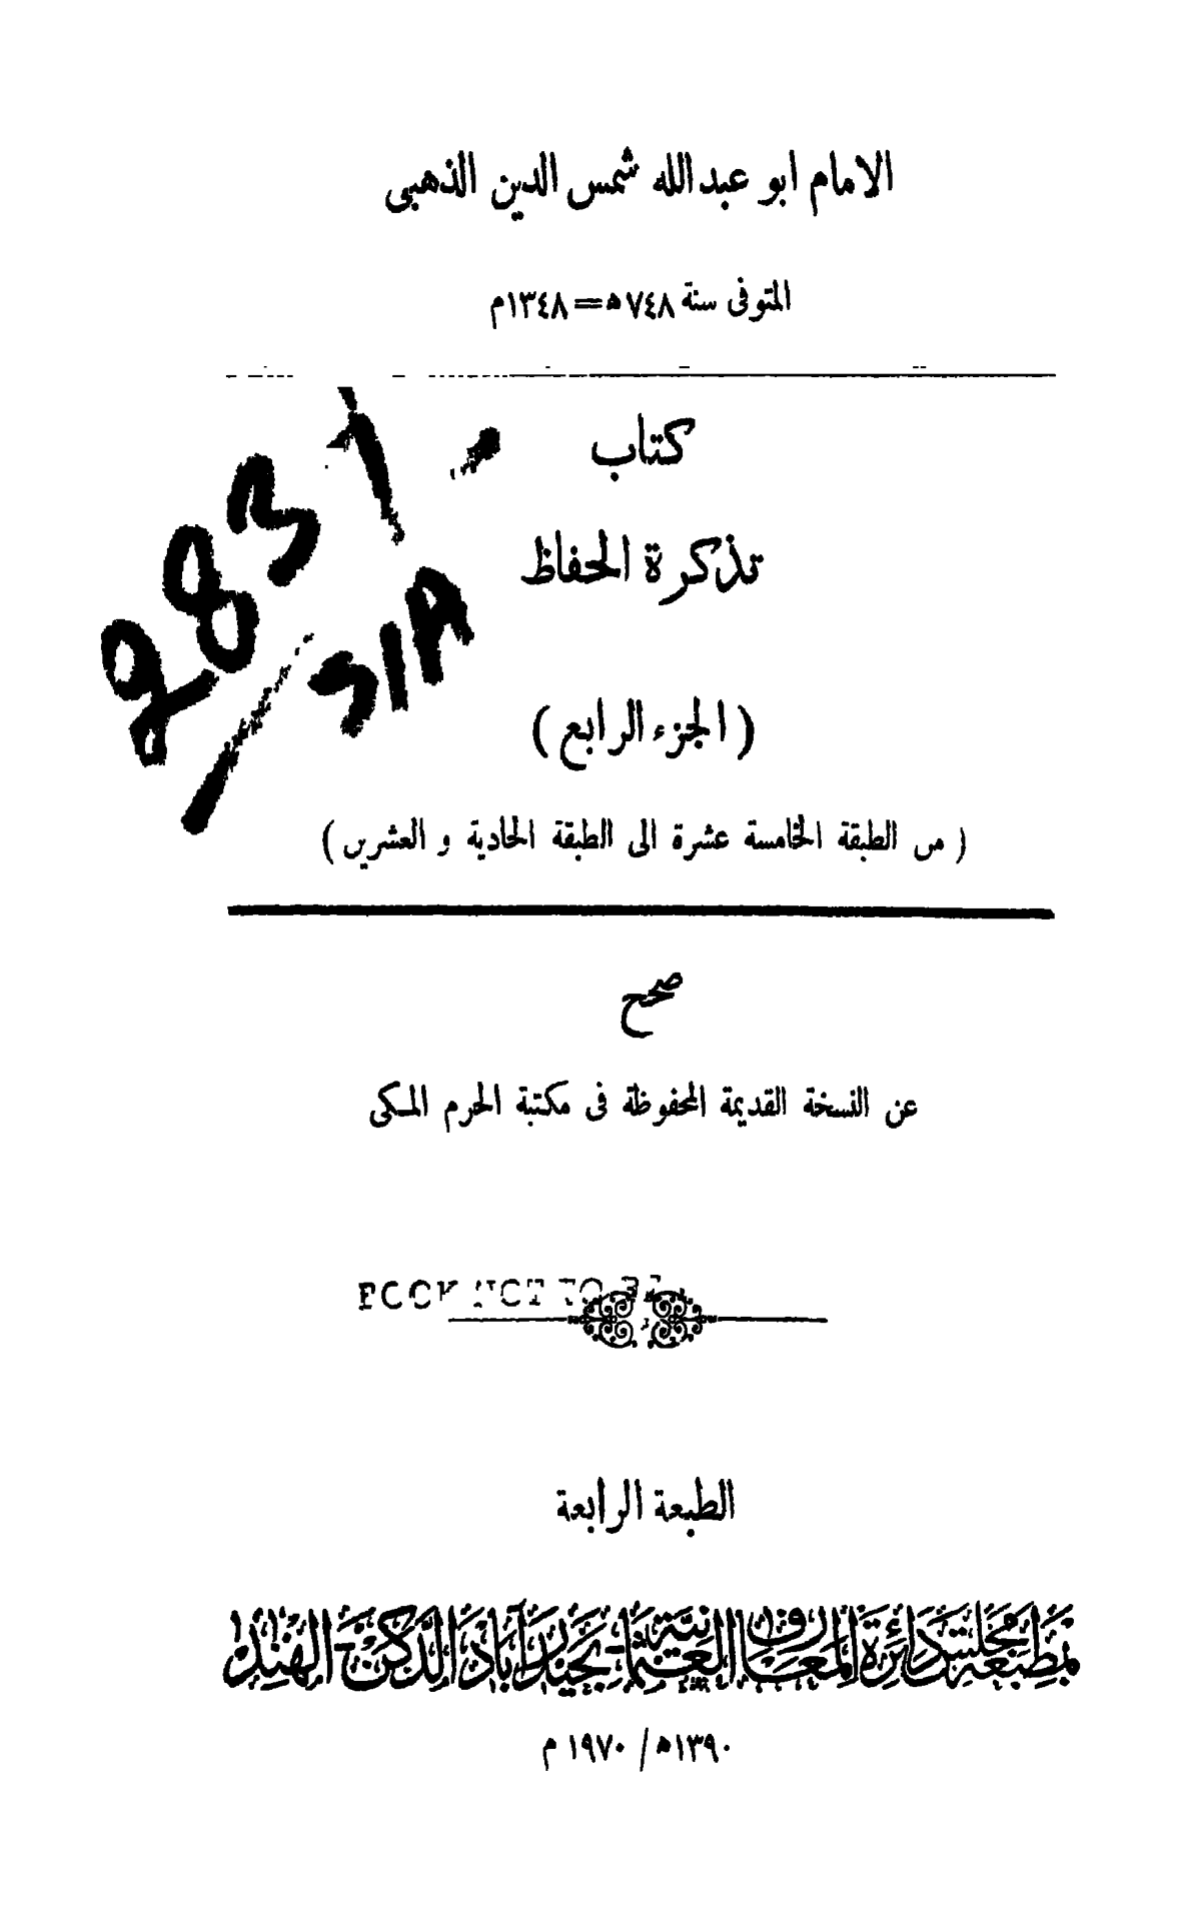 الامام ابو عبد الله شمس الدين الذهبى
المتوفى سنة ٧٤٨ھ=١٣٤٨م
كتاب
تذكرة الحفاظ
2831
SIA
(الجزء الرابع)
(من الطبقة الخامسة عشرة الى الطبقة الحادية و العشرين)
صحح
عن النسخة القديمة المحفوظة فى مكتبة الحرم المكى
BOOK NOT TO BE
الطبعة الرابعة
بمطبعة مجلس دائرة المعارف العثمانية بحيدر آباد الدكن الهند
١٣٩٠ھ/ ١٩٧٠ م